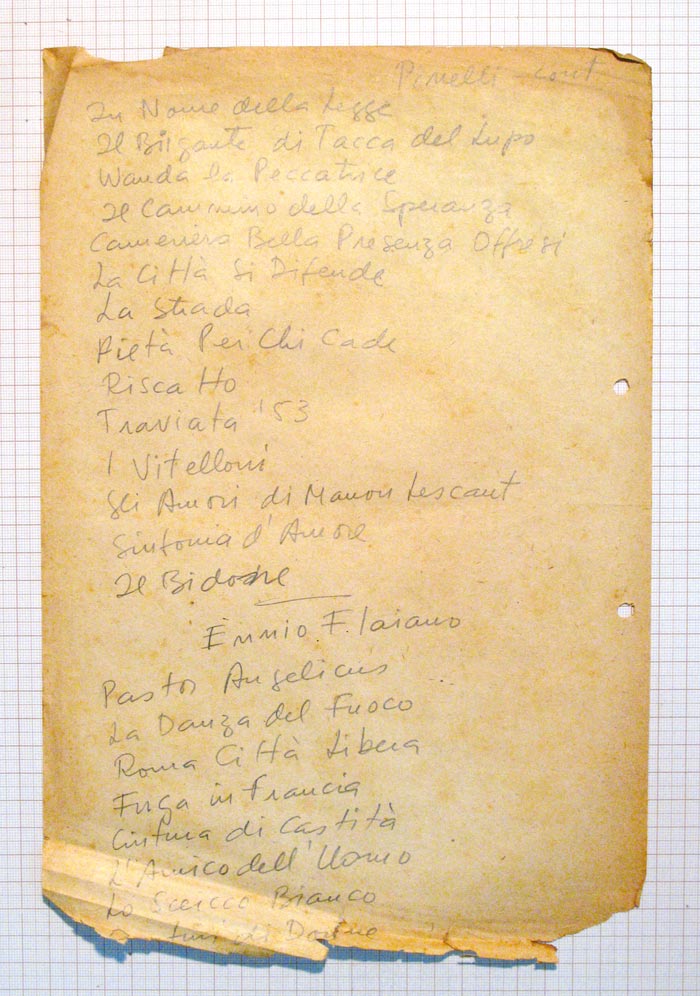 Pinelli - cont
In Nome della Legge
Il Brigante di Tacca del Lupo
Wanda la Peccatrice
Il Cammino della Speranza
Cameriera Bella Presenza Offresi
La Città Si Difende
La Strada
Pietà Per Chi Cade
Riscatto
Traviata '53
I Vitelloni
Gli Amori di Manon Lescaut
Sinfonia d'Amore
Il Bidone
Ennio Flaiano
Pastor Angelicus
La Danza del Fuoco
Roma Città Libera
Fuga in Francia
Cintura di Castità
L'Amico dell'Uomo
Lo Sceicco Bianco
di Donne